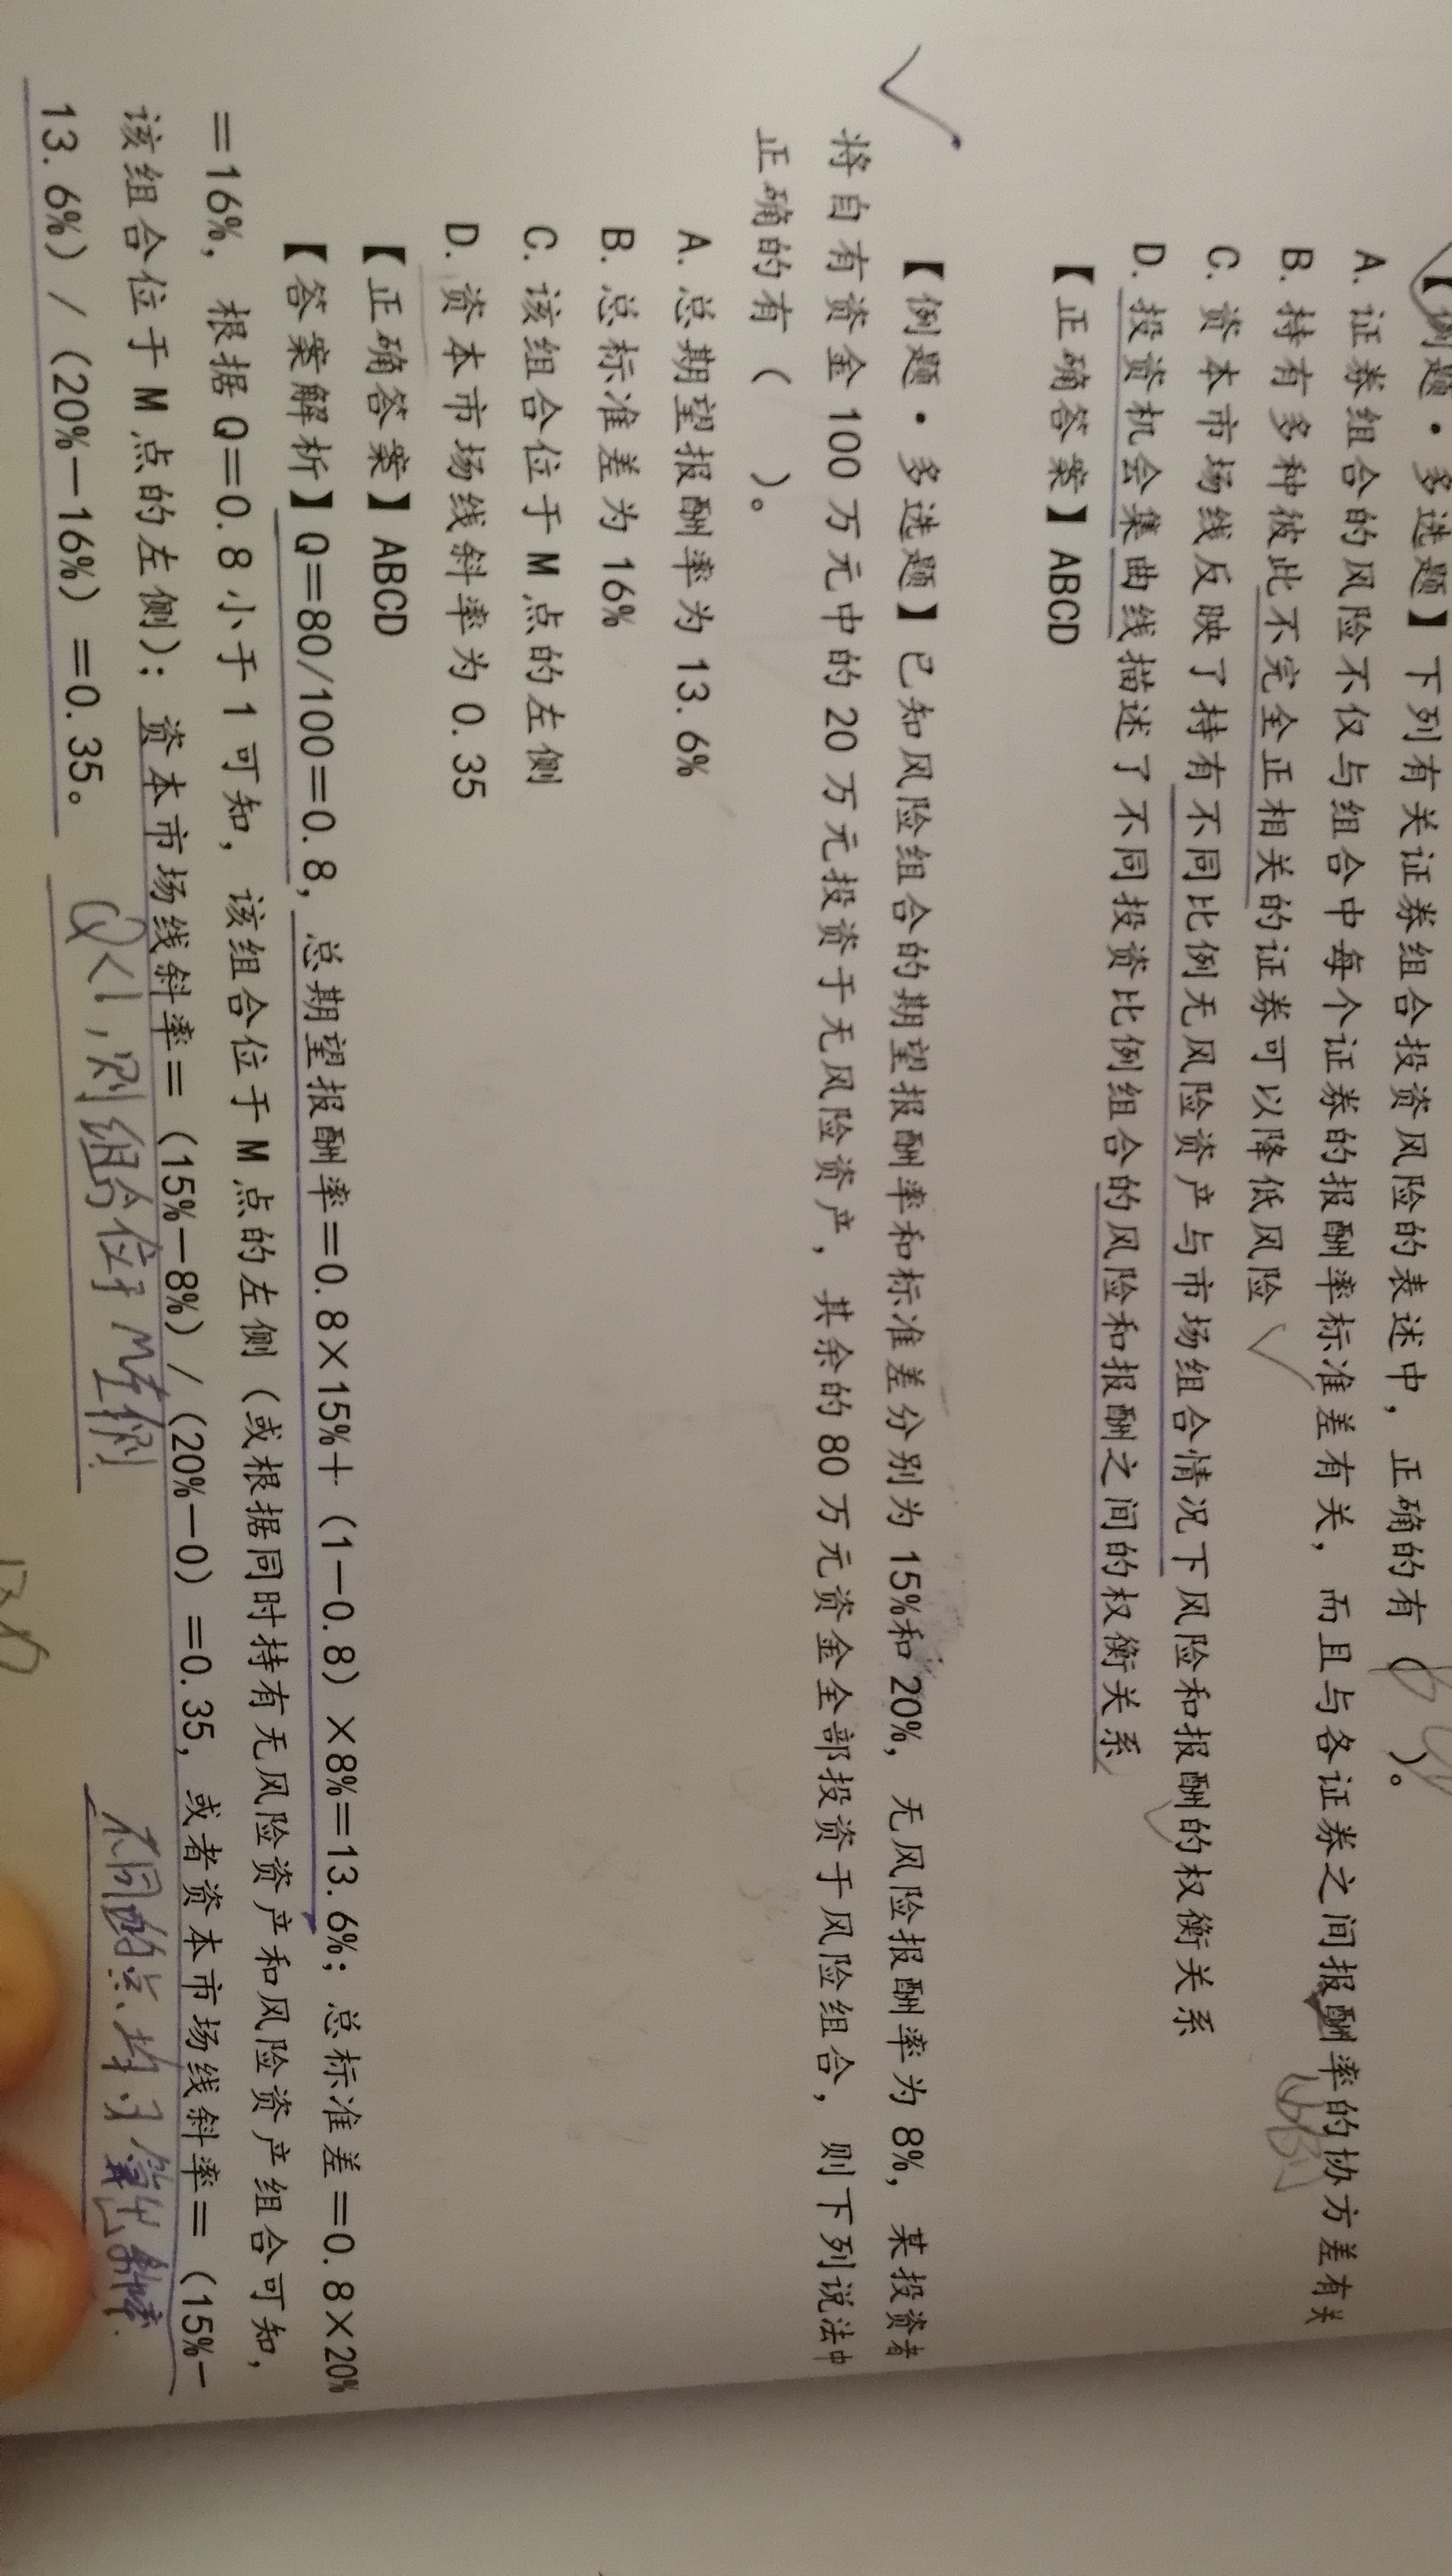 【例题·多选题】下列有关证券组合投资风险的表述中，正确的有（ ）。
A. 证券组合的风险不仅与组合中每个证券的报酬率标准差有关，而且与各证券之间报酬率的协方差有关
B. 持有多种彼此不完全正相关的证券可以降低风险
C. 资本市场线反映了持有不同比例无风险资产与市场组合情况下风险和报酬的权衡关系
D. 投资机会集曲线描述了不同投资比例组合的风险和报酬之间的权衡关系
【正确答案】ABCD
【例题·多选题】已知风险组合的期望报酬率和标准差分别为 15%和 20%，无风险报酬率为 8%，某投资者
将自有资金 100 万元中的 20 万元投资于无风险资产，其余的 80 万元资金全部投资于风险组合，则下列说法中
正确的有（ ）。
A. 总期望报酬率为 13.6%
B. 总标准差为 16%
C. 该组合位于 M 点的左侧
D. 资本市场线斜率为 0.35
【正确答案】ABCD
【答案解析】Q＝80/100＝0.8，总期望报酬率＝0.8×15%＋（1－0.8）×8%＝13.6%；总标准差＝0.8×20%
＝16%，根据 Q＝0.8 小于 1 可知，该组合位于 M 点的左侧（或根据同时持有无风险资产和风险资产组合可知，
该组合位于 M 点的左侧）；资本市场线斜率＝（15%－8%）/（20%－0）＝0.35，或者资本市场线斜率＝（15%－
13.6%）/（20%－16%）＝0.35。
Q<1，则组合位于M左侧.
不同的点、均可算出斜率.